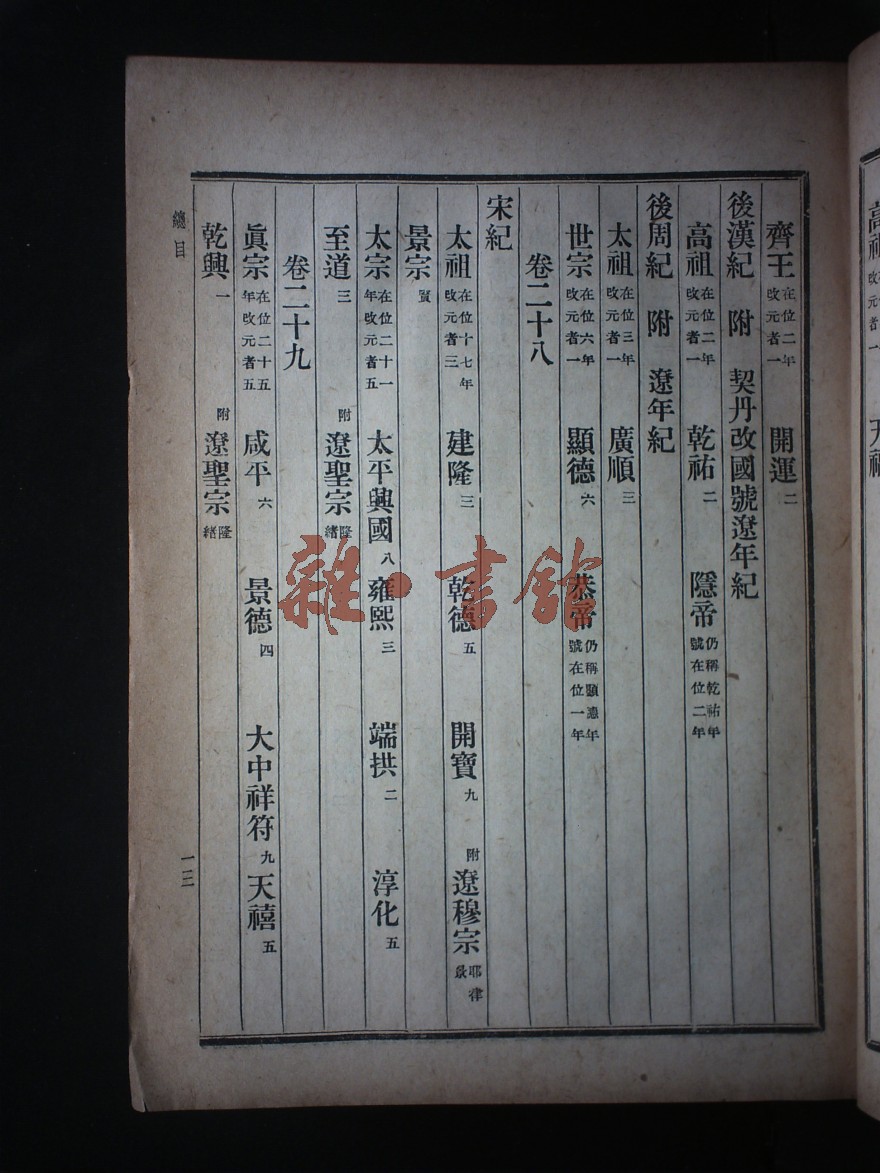 齊王 在位二年改元者一 開運 二
後漢紀 附 契丹改國號遼年紀
高祖 在位二年改元者一 乾祐 二 隱帝 仍稱乾祐年號在位二年
後周紀 附 遼年紀
太祖 在位三年改元者一 廣順 三
世宗 在位六年改元者一 顯德 六 恭帝 仍稱顯德年號在位一年
卷二十八
宋紀
太祖 在位十七年改元者三 建隆 三 乾德 五 開寶 九 附 遼穆宗 耶律景
景宗 賢
太宗 在位二十一年改元者五 太平興國 八 雍熙 三 端拱 二 淳化 五
至道 三 附 遼聖宗 隆緒
卷二十九
眞宗 在位二十五年改元者五 咸平 六 景德 四 大中祥符 九 天禧 五
乾興 一 附 遼聖宗 隆緒
總目
一三
雜·書館
高祖
改元者一
天福